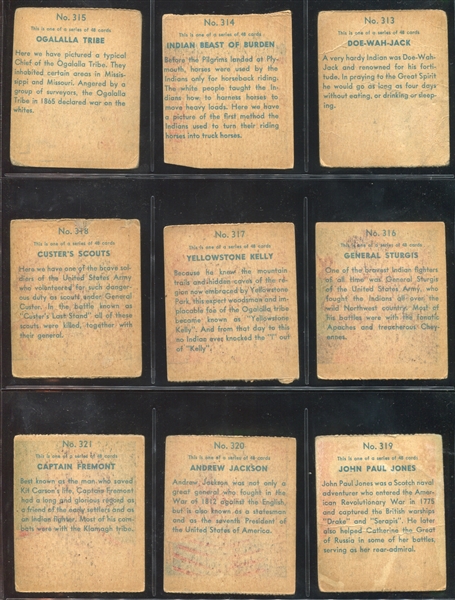 No. 315
This is one of a series of 48 cards
OGALALLA TRIBE
Here we have pictured a typical
Chief of the Ogalalla Tribe. They
inhabited certain areas in Missis-
sippi and Missouri. Angered by a
group of surveyors, the Ogalalla
Tribe in 1865 declared war on the
whites.
No. 314
This is one of a series of 48 cards
INDIAN BEAST OF BURDEN
Before the Pilgrims landed at Ply-
mouth, horses were used by the
Indians only for horseback riding.
The white people taught the In-
dians how to harness horses to
move heavy loads. Here we have
a picture of the first method the
Indians used to turn their riding
horses into truck horses.
No. 313
This is one of a series of 48 cards
DOE-WAH-JACK
A very hardy Indian was Doe-Wah-
Jack and renowned for his forti-
tude. In praying to the Great Spirit
he would go as long as four days
without eating, or drinking or sleep-
ing.
No. 318
This is one of a series of 48 cards
CUSTER'S SCOUTS
Here we have one of the brave sol-
diers of the United States Army
who volunteered for such danger-
ous duty as scouts under General
Custer. In the battle known as
"Custer's Last Stand" all of these
scouts were killed, together with
their general.
No. 317
This is one of a series of 48 cards
YELLOWSTONE KELLY
Because he knew the mountain
trails and hidden caves of the re-
gion now embraced by Yellowstone
Park, this expert woodsman and im-
placable foe of the Ogalalla tribe
became known as "Yellowstone
Kelly". And from that day to this
no Indian ever knocked the "l" out
of "Kelly".
No. 316
This is one of a series of 48 cards
GENERAL STURGIS
One of the bravest Indian fighters
of all time was General Sturgis
of the United States Army, who
fought the Indians all over the
wild Northwest country. Most of
his battles were with the fanatic
Apaches and treacherous Chey-
ennes.
No. 321
This is one of a series of 48 cards
CAPTAIN FREMONT
Best known as the man who saved
Kit Carson's life, Captain Fremont
had a long and glorious record as
a friend of the early settlers and as
an Indian fighter. Most of his com-
bats were with the Klamath tribe.
No. 320
This is one of a series of 48 cards
ANDREW JACKSON
Andrew Jackson was not only a
great general who fought in the
War of 1812 against the English,
but is also known as a statesman
and as the seventh President of
the United States of America.
No. 319
This is one of a series of 48 cards
JOHN PAUL JONES
John Paul Jones was a Scotch naval
adventurer who entered the Amer-
ican Revolutionary War in 1775
and captured the British warships
"Drake" and "Serapis". He later
also helped Catherine the Great
of Russia in some of her battles,
serving as her rear-admiral.